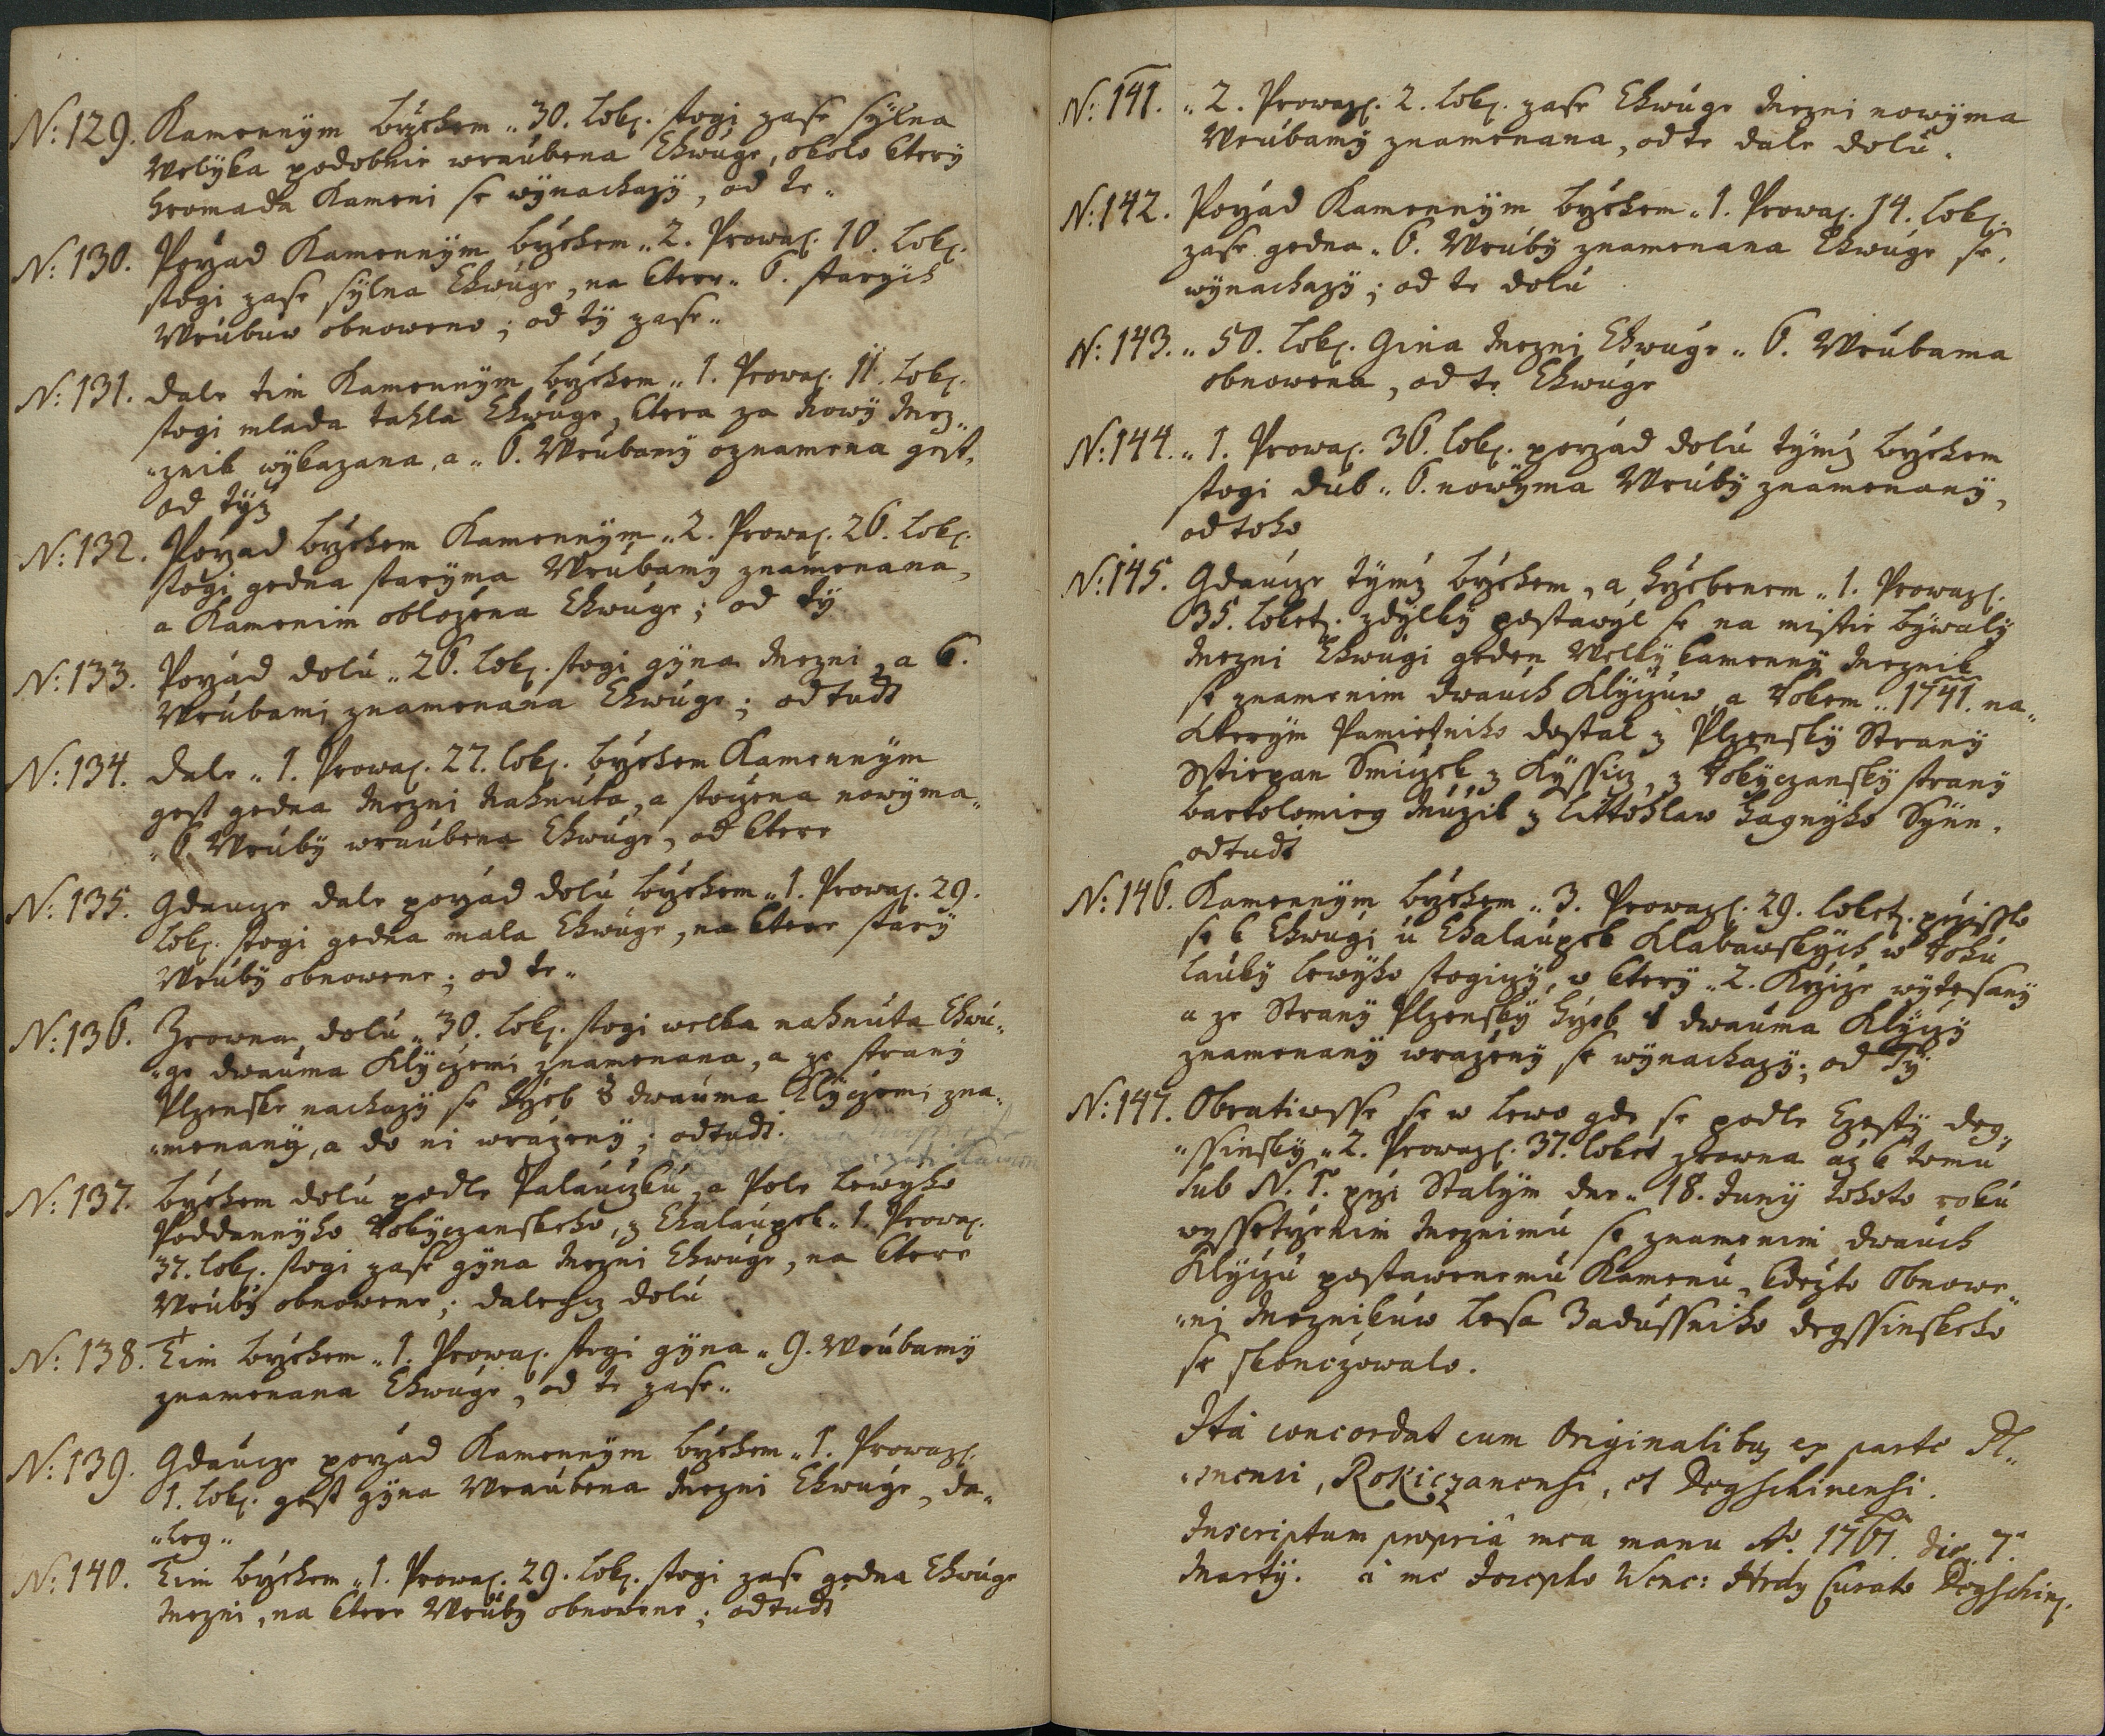 N: 129. Kamennym bržehem „ 30. Lok. stogi zase sylna
Welyka podobnie wraubena Chwuge, okolo ktery
hromada Kameni se wynachazy, od te „
N: 130. Pořad Kamennym bržehem „ 2. Prowaz. 10. Lok.
stogi zase sylna Chwuge, na ktere „ 6. starych
Wrubuw obnoweno; od ty zase „
N: 131. dale tim Kamennym bržehem „ 1. Prowaz. 11. Lok.
stogi mlada tahla Chwuge, ktera za nowy Mez„
„znik wykazana, a „ 6. Wrubamy oznamena gest,
od tyž
N: 132. Pořad bržehem Kamennym „ 2. Prowaz. 26. Lok.
stogi gedna staryma Wrubamy znamenana,
a Kamenim obložena Chwuge; od ty
N: 133. Pořád dolu „ 26. Lok. stogi gyna Mezni, a 6.
Wrubami znamenana Chwuge; odtudť
N: 134. dale „ 1. Prowaz. 27. Lok. bržehem Kamennym
gest gedna Mezni nahnuta, a stočena nowyma„
„ 6 Wruby wraubena Chwuge, od ktere
N: 135. Gdaucze dale pořád dolu bržehem „ 1. Prowaz. 29.
Lok. stogi gedna mala Chwuge, na ktere stary
Wruby obnowene; od te „
N: 136. Zrowna dolu „ 30. Lok. stogi welka nahnuta Chwu„
„ge dwauma Klyczemi znamenana, a ze strany
Plzenske nachazy se hřeb s dwauma Klyczemi zna„
„menany, a do ni wražený; odtudť.
N: 137. bržehem dolu podle Palauczku, a Pole Lewyho
Poddannyho Rokyczanskeho, z Chalaupek „ 1. Prowaz.
37. Lok. stogi zase gyna Mezni Chwuge, na ktere
Wruby obnowene; dalegssy dolu
N: 138. Tim bržehem „ 1. Prowaz. stogi gyna „ 9. Wrubamy
znamenana Chwuge, od te zase „
N: 139. Gdaucze pořzad Kamennym bržehem „ 1. Prowaz.
1. Lok. gest gyna Wraubena Mezni Chwuge, da„
„leg „
N: 140. Tim bržehem „ 1. Prowaz. 29. Lok. stogi zase gedna Chwuge
Mezni, na ktere Wruby obnowene; odtudť
N: 141. „ 2. Prowaz. 2. Lok. zase Chwuge Mezni nowyma
Wrubamy znamenana, od te dale dolu.
N: 142. Pořád Kamennym bržehem „ 1. Prowaz. 14. Lok.
zase gedna „ 6. Wruby znamenana Chwuge se
wynachazy; od te dolu
N: 143. „ 50. Lok. Gina Mezni Chwuge „ 6. Wrubama
obnowena, od te Chwuge
N: 144. „ 1. Prowaz. 36. Lok. pořzád dolu tymž bržehem
stogi dub „ 6. nowyma Wruby znamenaný,
od toho
N: 145. Gdaucze tymž bržehem, a hržebenem „ 1. Prowaz.
35. Loket. zdylky postawyl se na mistie bywaly
Mezni Chwugi geden Welký kamenný Meznik
se znamenim dwauch Klyczuw, a Rokem „ 1741. na„
Kterym Pamietniho dostal z Plzensky Strany
Sstiepan Smiczek z Kyssicz, z Rokyczansky strany
bartolomieg Mužik z Littohlaw hagnyho Syn.
odtudť
N: 146. Kamennym bržehem „ 3. Prowaz. 29. Loket. přzisslo
se k Chwugi u Chalaupek Klabawskych w Rohu
lauky Lewyho stogiczy, w ktery „ 2. Kržiže wytesaný
a ze Strany Plzenský hřeb s dwauma Klyczy
znamenaný wražený se wynachazy; od Ty
N: 147. Obratiwsse se w Lewo gde se podle Czesty deg„
„ssinský „ 2. Prowaz. 37. Loket zrowna až k tomu
sub N. 1. przi Stalym dne „ 18. Juny tohoto roku
wyssetrženim Meznimu se znamenim dwauch
Klyczu postawenemu Kamenu, kdežto Obnowe„
„ni Meznikuw Lesa Zadussniho degssinskeho
se skonczowalo.
Ita concordat cum Originalibus ex parte Pl„
„snensi, Rokiczanensi, et Dogschinensi.
Inscriptum propriâ mea manu Ao. 1761. die 7.
Marty. à me Josepho Wenc: Hrdy Curato Dogschin.